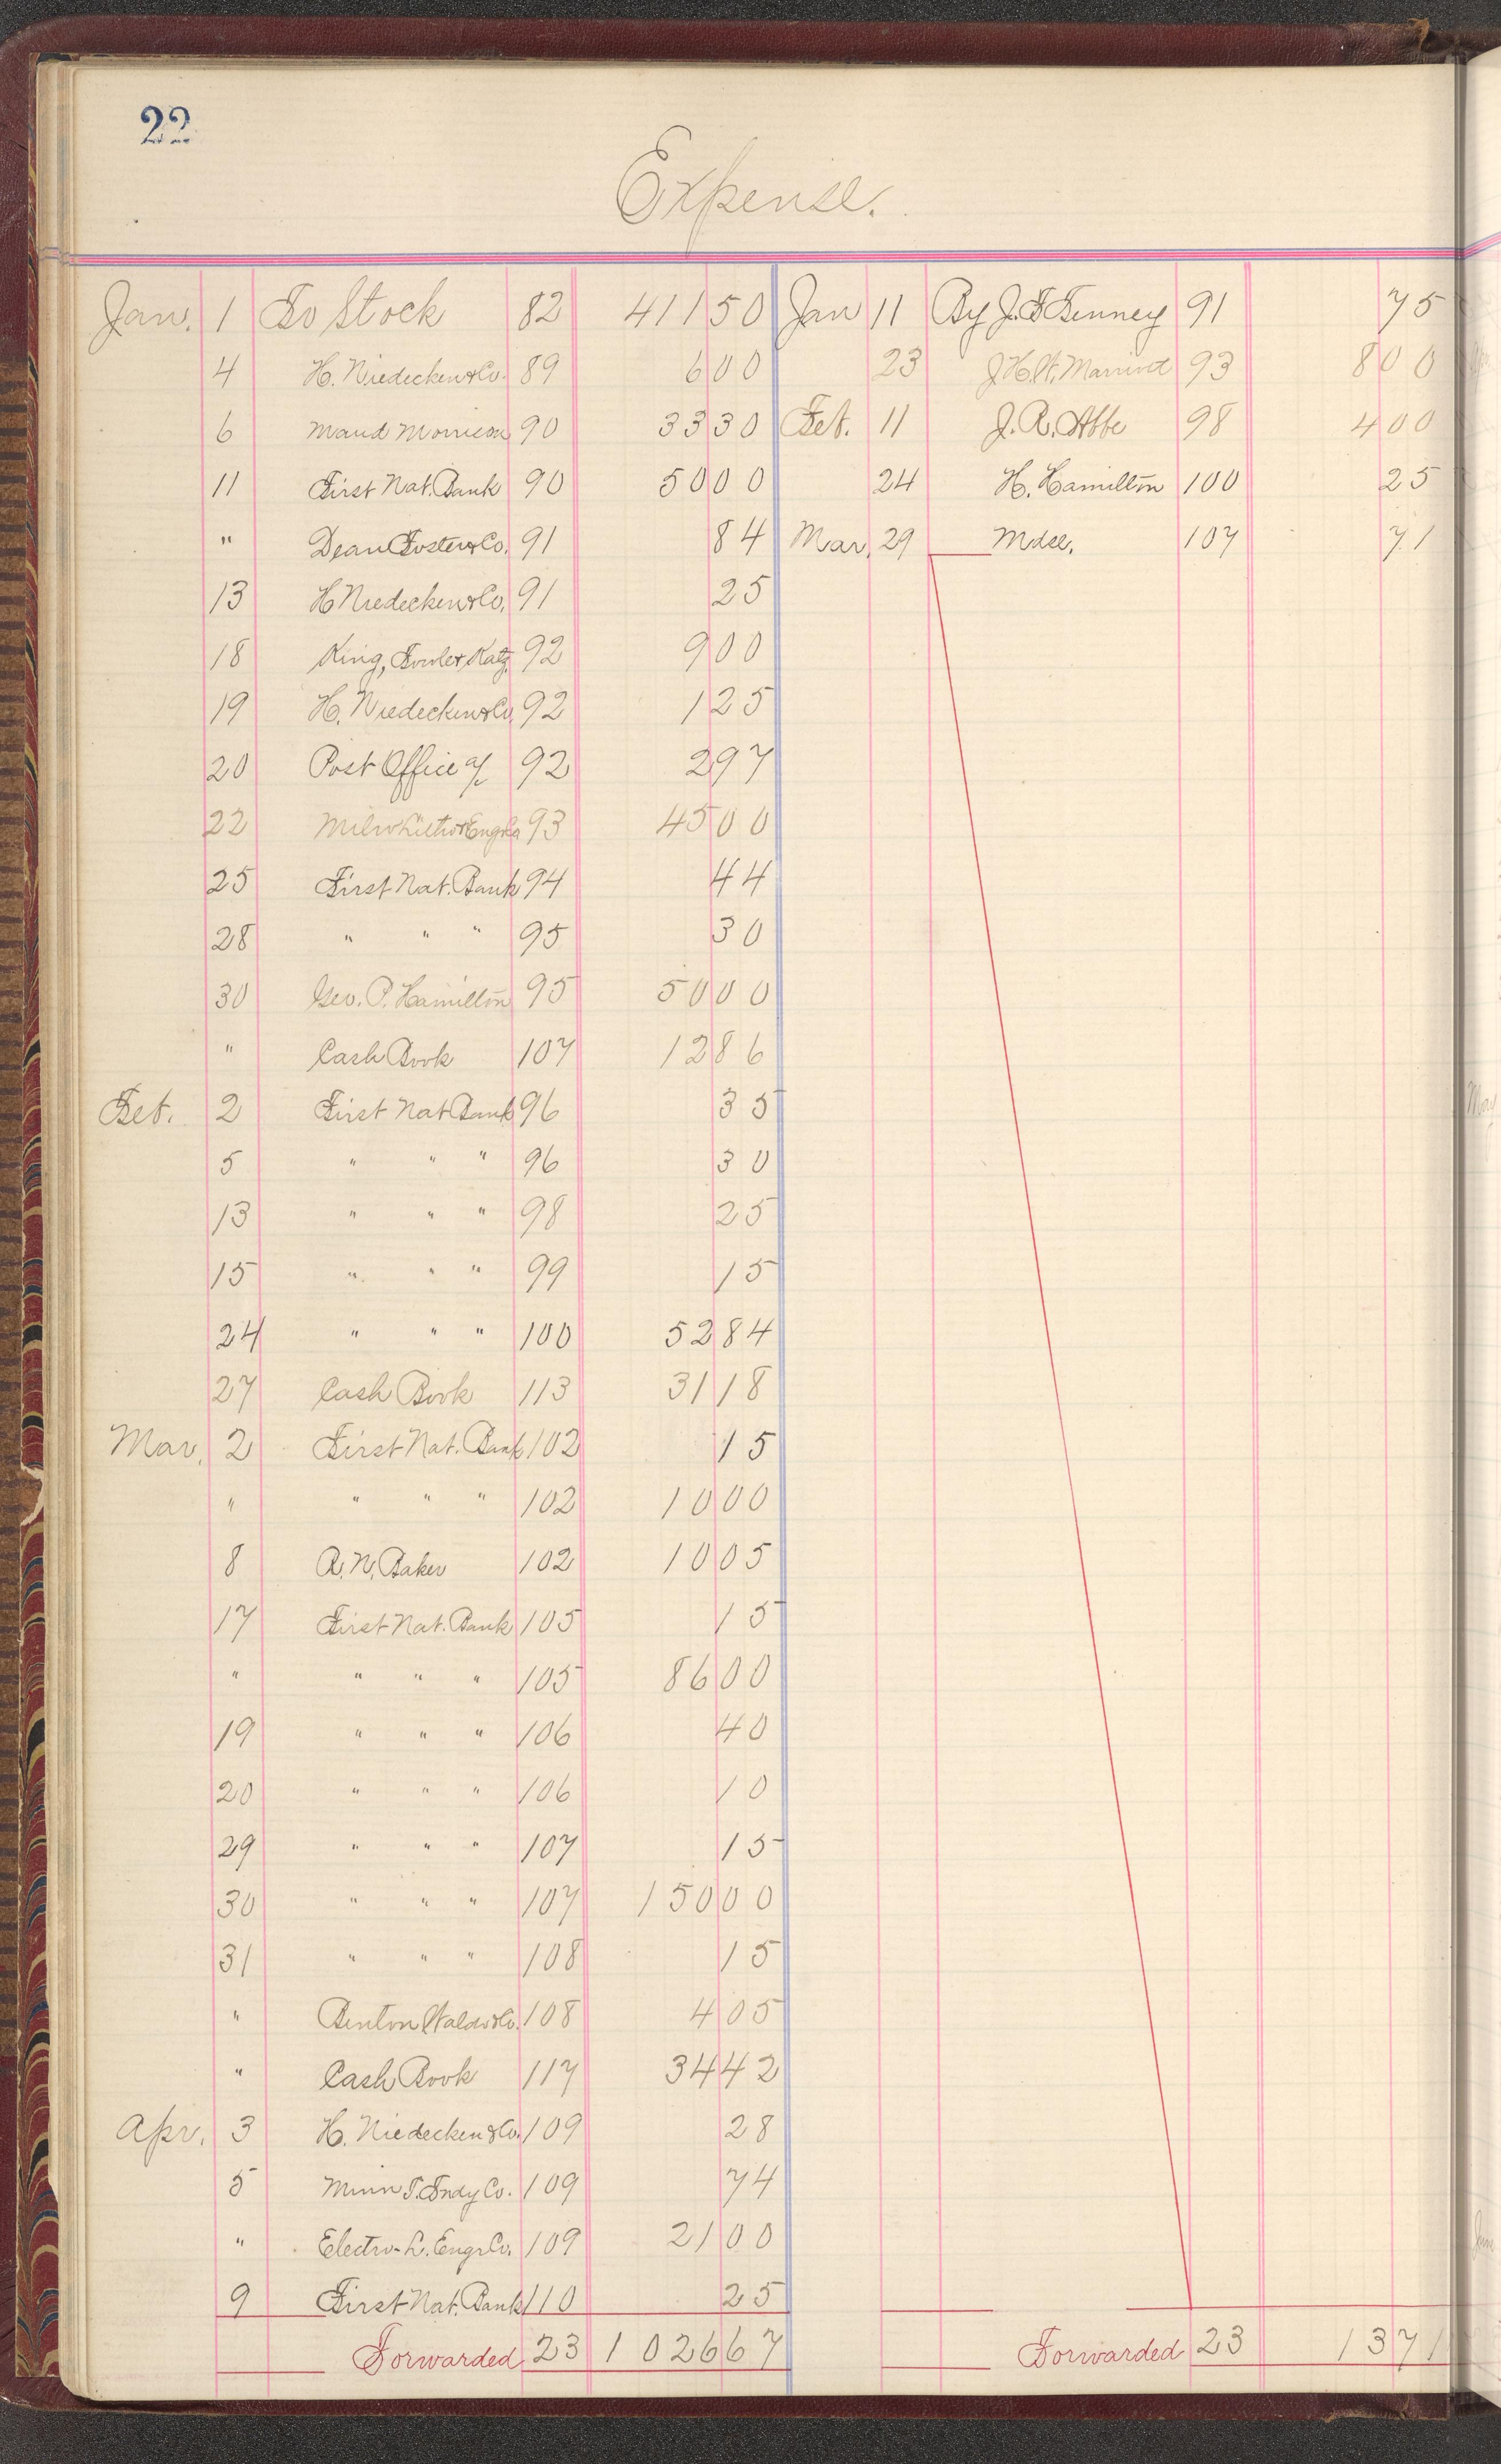 22
Expense.
Jan. 1 To Stock 82 411 50
4 H. Niedecken & Co. 89 6 00
6 Maud Morrison 90 33 30
11 First Nat. Bank 90 50 00
" Dean Foster & Co. 91 84
13 H Niedecken & Co. 91 25
18 King, Fowle & Katz 92 9 00
19 H. Niedecken & Co. 92 1 25
20 Post Office a/c 92 2 97
22 Milw Litho & Eng Co 93 45 00
25 First Nat. Bank 94 44
28 " " " 95 30
30 Geo. P. Hamilton 95 50 00
" Cash Book 107 12 86
Feb. 2 First Nat Bank 96 35
5 " " " 96 30
13 " " " 98 25
15 " " " 99 15
24 " " " 100 52 84
27 Cash Book 113 31 18
Mar. 2 First Nat. Bank 102 15
" " " " 102 10 00
8 A. N. Baker 102 10 05
17 First Nat. Bank 105 15
" " " " 105 86 00
19 " " " 106 40
20 " " " 106 10
29 " " " 107 15
30 " " " 107 150 00
31 " " " 108 15
" Benton Waldo & Co. 108 4 05
" Cash Book 117 34 42
Apr. 3 H. Niedecken & Co. 109 28
5 Minn T. Fndy Co. 109 74
" Electro-L. Engr Co. 109 21 00
9 First Nat. Bank 110 25
Forwarded 23 1026 67
Jan 11 By J. F Tenney 91 75
23 J H. W. Marriott 93 8 00
Feb. 11 J. R. Abbe 98 4 00
24 H. Hamilton 100 25
Mar. 29 Mdse. 107 71
Forwarded 23 13 71